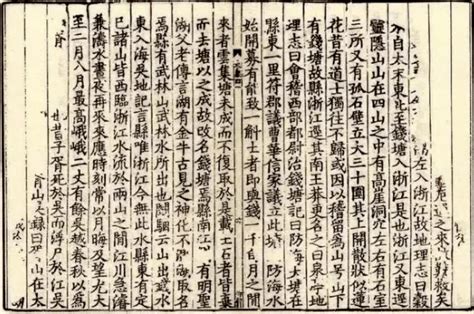 左入浙江故地理志曰穀
水自太末東北至錢塘入浙江是也浙江又東逕
靈隱山山在四山之中有高崖洞穴左右有石室
三所又有孤石壁立大三十圍其上開散狀似蓮
花昔有道士獨往不歸或因以稽留為山號山下
有錢塘故縣浙江逕其南王莽更名之曰泉亭地
理志曰會稽西部都尉治錢塘記曰防海大塘在
縣東一里許郡議曹華信家議立此塘以防海水
始開募有能致一斛土者即與錢一千旬月之間
來者雲集塘未成而不復取於是載土石者皆棄
而去塘以之成故改名錢塘焉縣南江側有明聖
湖父老傳言湖有金牛古見之神化不測湖取名
焉縣有武林山武林水所出也闞駰云山出武水
東入海吳地記言縣唯浙江今無此水縣東有定
已諸山皆西臨浙江水流於兩山之間江川急濬
兼濤水晝夜再來來應時刻常以月晦及望尤大
至二月八月最高峨峨二丈有餘吳越春秋以為
也昔子胥死於吳而浮尸於江吳